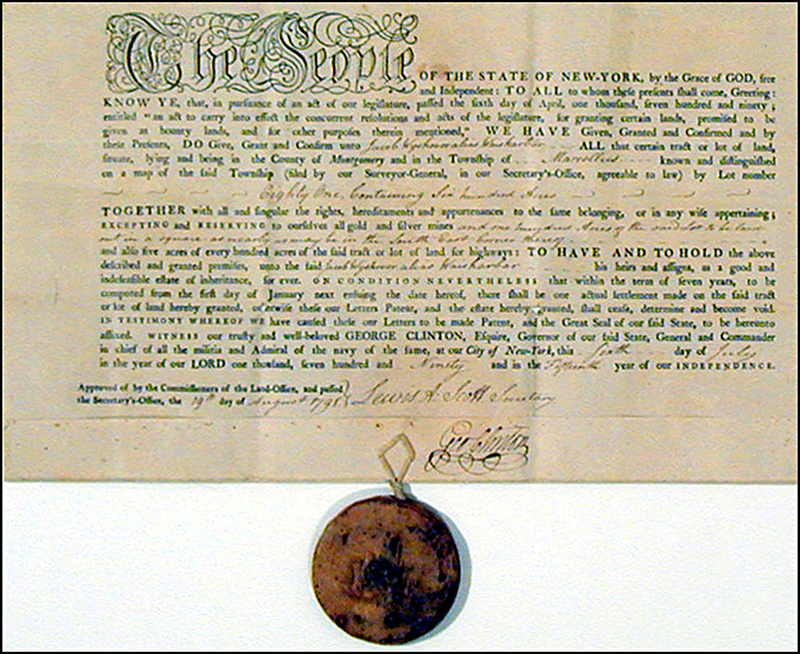 The People
OF THE STATE OF NEW-YORK, by the Grace of GOD, free
and Independent: TO ALL to whom these presents shall come, Greeting:
KNOW YE, that, in pursuance of an act of our legislature, passed the sixth day of April, one thousand, seven hundred and ninety;
entitled "an act to carry into effect the concurrent resolutions and acts of the legislature, for granting certain lands, promised to be
given as bounty lands, and for other purposes therein mentioned," WE HAVE Given, Granted and Confirmed and by
these Presents, DO Give, Grant and Confirm unto Jacob alias ALL that certain tract or lot of land,
situate, lying and being in the County of Montgomery and in the Township of Marcellus known and distinguished
on a map of the said Township (filed by our Surveyor-General, in our Secretary's-Office, agreeable to law) by Lot number
Eighty One, Containing Six hundred Acres
TOGETHER with all and singular the rights, hereditaments and appurtenances to the same belonging, or in any wise appertaining;
EXCEPTING and RESERVING to ourselves all gold and silver mines and one hundred Acres of the said Lot to be laid
out in a square as nearly as may be in the South East Corner thereof
and also five acres of every hundred acres of the said tract or lot of land for highways: TO HAVE AND TO HOLD the above
described and granted premises, unto the said Jacob alias his heirs and assigns, as a good and
indefeasible estate of inheritance, for ever. ON CONDITION NEVERTHELESS that within the term of seven years, to be
computed from the first day of January next ensuing the date hereof, there shall be one actual settlement made on the said tract
or lot of land hereby granted, otherwise these our Letters Patent, and the estate hereby granted, shall cease, determine and become void.
IN TESTIMONY WHEREOF we have caused these our Letters to be made Patent, and the Great Seal of our said State, to be hereunto
affixed. WITNESS our trusty and well-beloved GEORGE CLINTON, Esquire, Governor of our said State, General and Commander
in chief of all the militia and Admiral of the navy of the same, at our City of New-York, this Sixth day of July
in the year of our LORD one thousand, seven hundred and Ninety and in the Fifteenth year of our INDEPENDENCE.
Approved of by the Commissioners of the Land-Office, and passed
the Secretary's-Office, the 19th day of August 1791 Lewis A. Scott Secretary
Geo Clinton